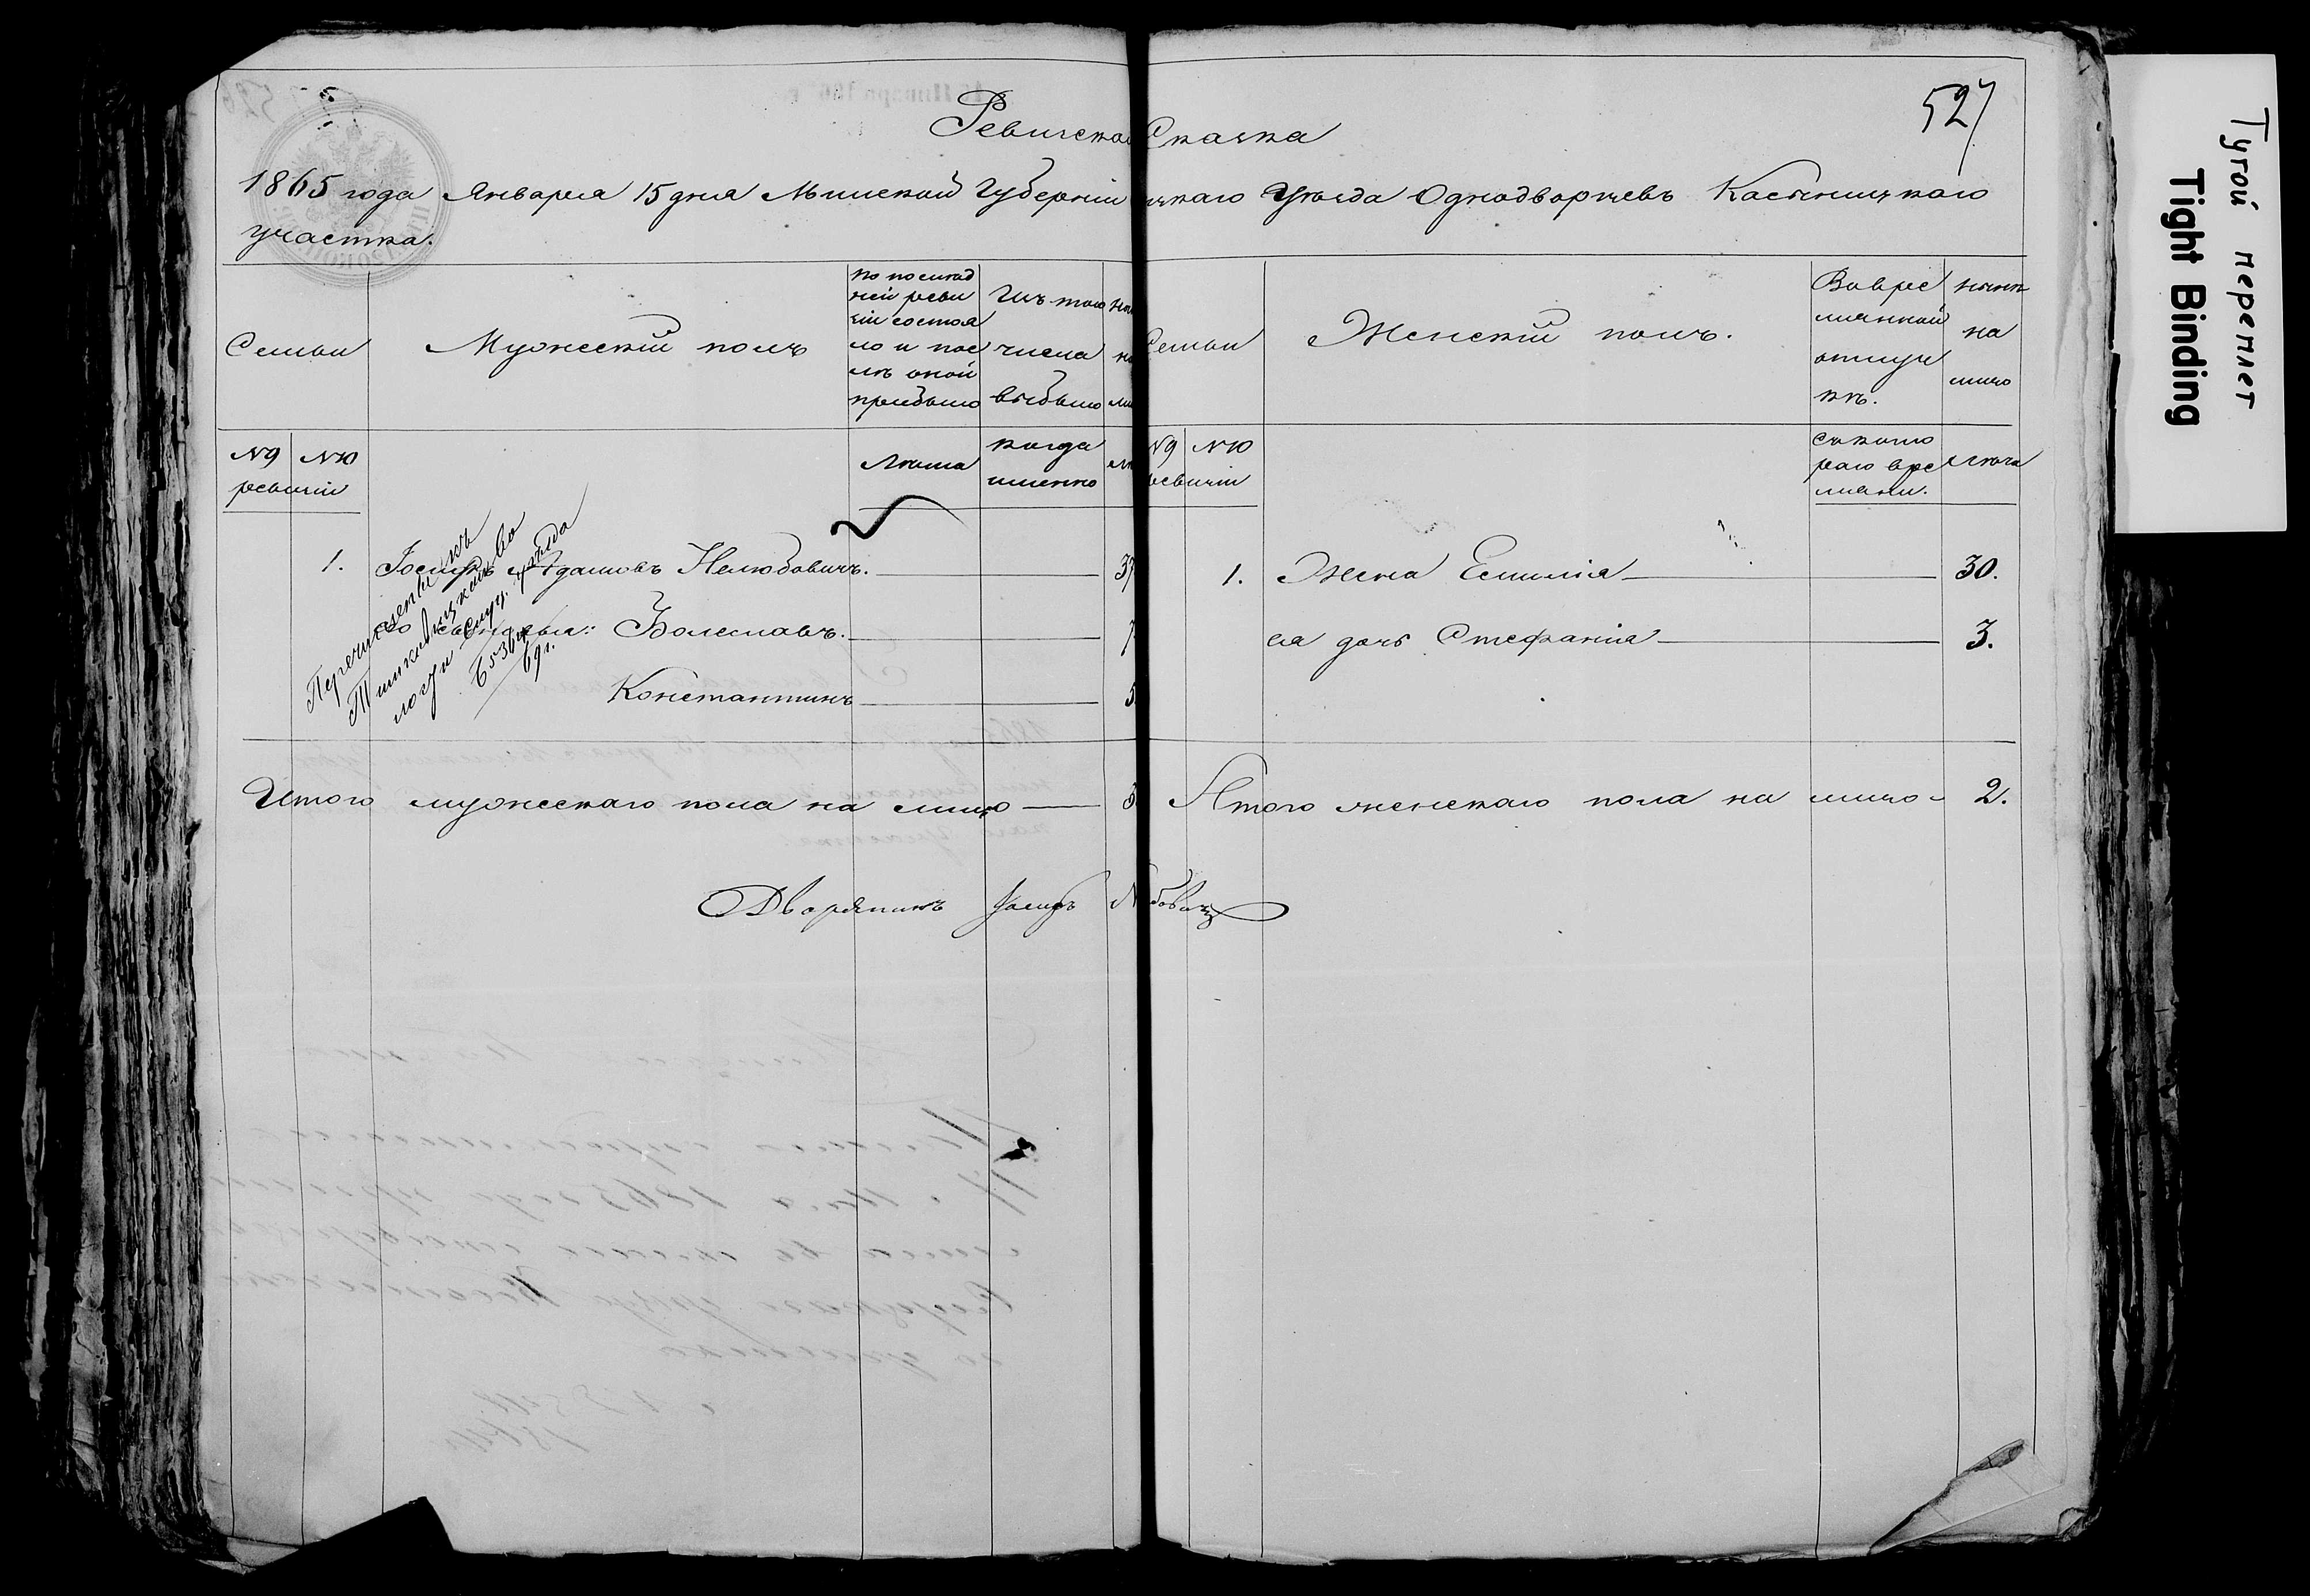 527
Ревизская Сказка
1865 года Января 15 дня Минской Губерніи цкаго Уѣзда Однодворцевъ Касыницкаго
участка.
Семьи
Мужескій полъ
по послѣд
ней реви
зіи состоя
ло и пос
лѣ оной
прибыло
Изъ того
числа
выбыло
Семьи
Женскій полъ.
Вовре
мянной
отлуч
кѣ.
нынѣ
на
лицо
№9 №10
ревизіи
Лѣта
когда
именно
№9 №10
ревизіи
съ кото
раго вре
мяни.
Лѣта
1. Іосифъ Адамовъ Нелюбовичъ. 37
его сыновья: Болеславъ. 7
Константинъ 5
Перечисленъ въ
уѣзда
69 г.
1. Жена Емилія 30.
ея дочь Стефанія 3.
Итого мужескаго пола на лицо 3
Итого женскаго пола на лицо 2.
Дворянинъ Іосифъ Н бовичъ
Тугой переплет
Tight Binding